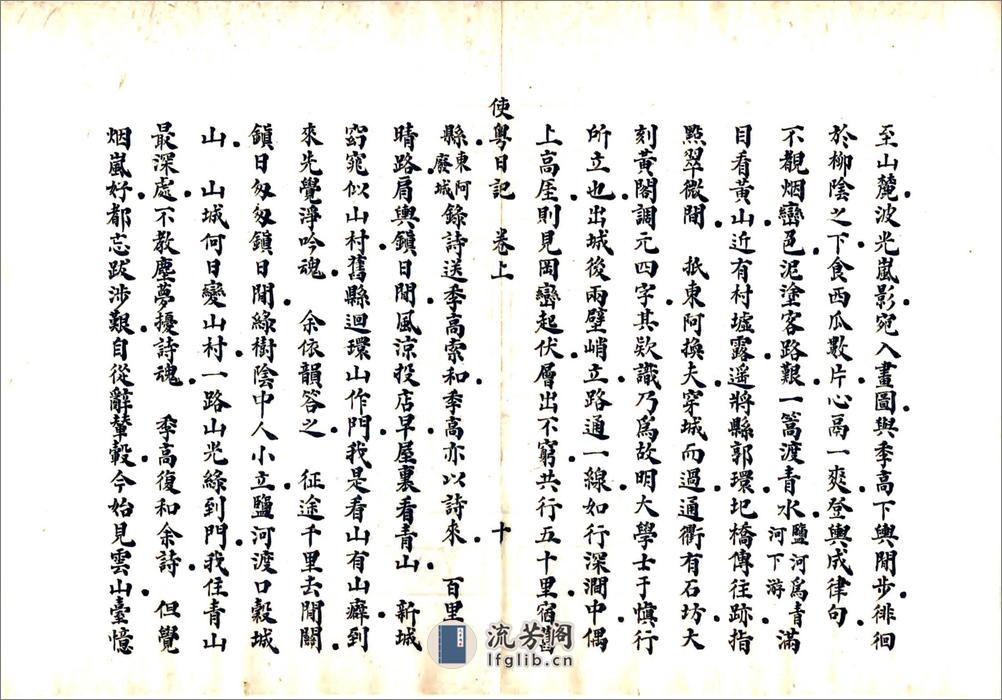 至山麓波光嵐影宛入畫圖與季高下輿閒步徘徊
於柳陰之下食西瓜數片心鬲一爽登輿成律句
不覩烟巒色泥塗客路艱一篙渡青水鹽河爲青河下游滿
目看黃山近有村墟露遥將縣郭環圯橋傳往跡指
㸃翠微間　抵東阿換夫穿城而過通衢有石坊大
刻黃閣調元四字其欵識乃爲故明大學士于慎行
所立也出城後兩壁峭立路通一線如行深澗中偶
上高厓則見岡巒起伏層出不窮共行五十里宿舊
使粵日記　卷上　十
縣東阿廢城錄詩送季高索和季高亦以詩來　百里
晴路肩輿鎮日閒風涼投店早屋裏看青山　新城
窈窕似山村舊縣迴環山作門我是看山有山癖到
來先覺淨吟魂　余依韻答之　征途千里去閒關
鎮日匆匆鎮日閒綠樹陰中人小立鹽河渡口穀城
山　山城何日變山村一路山光綠到門我住青山
最深處不教塵夢擾詩魂　季高復和余詩　但覺
烟嵐好都忘跋涉艱自從辭輦轂今始見雲山臺憶
流芳阁
lfglib.cn